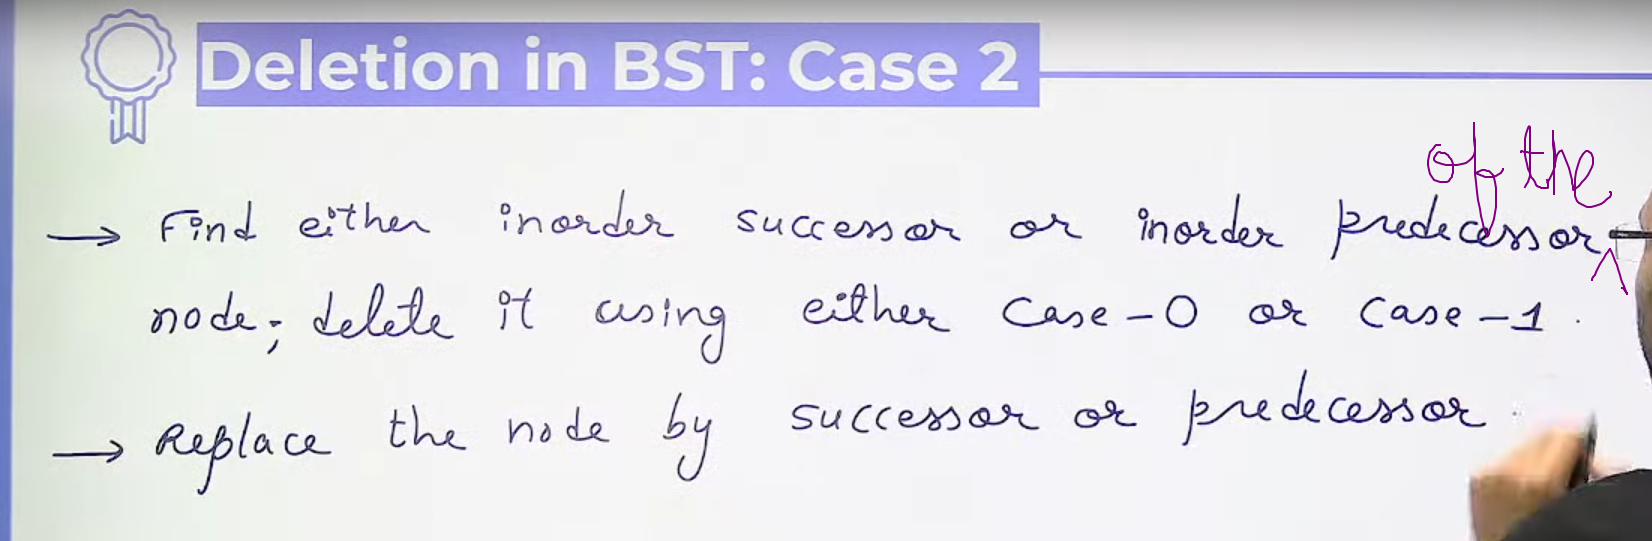 Deletion in BST: Case 2
of the
→ Find either inorder successor or inorder predecessor
node; delete it using either Case-0 or Case-1.
→ Replace the node by successor or predecessor.